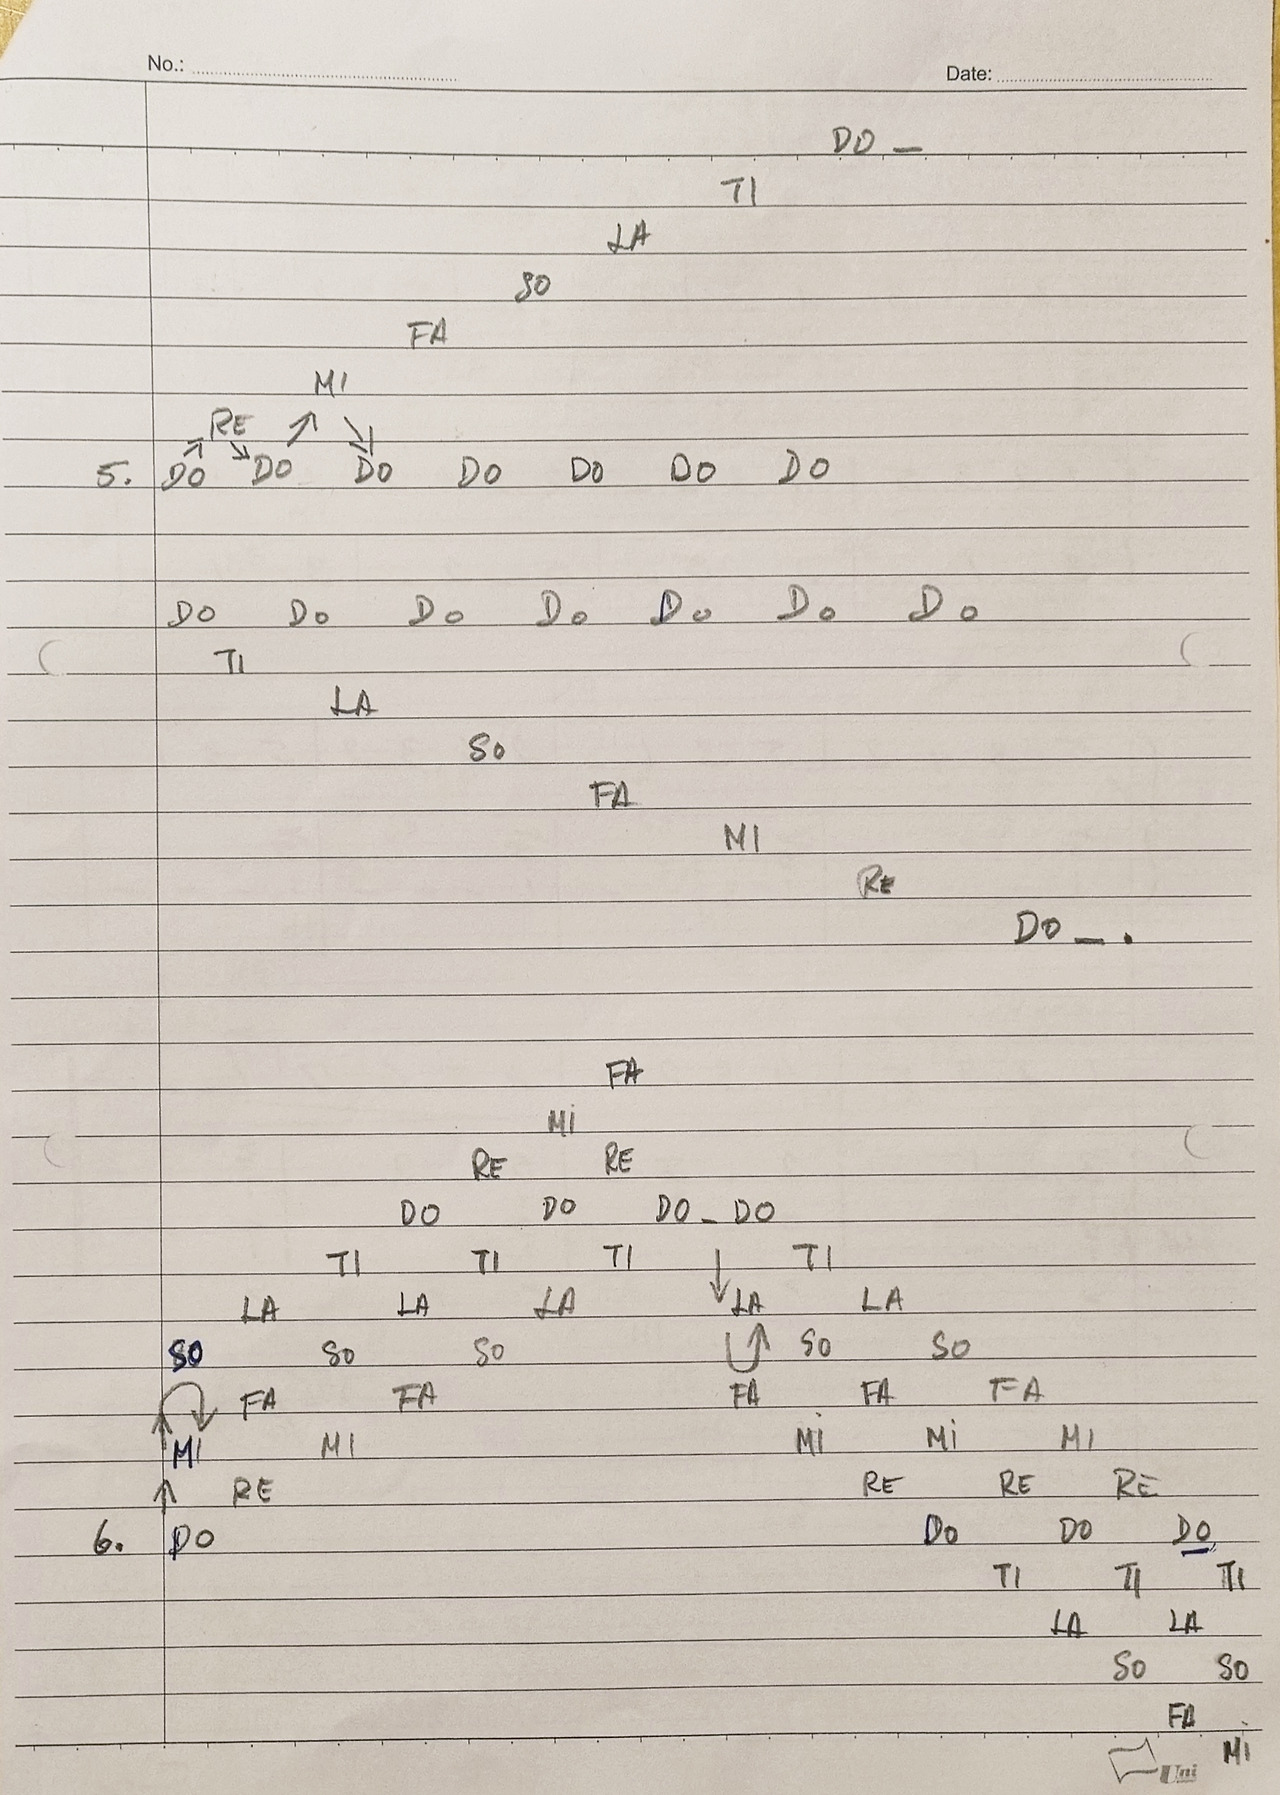 No.: Date:
DO _
TI
LA
SO
FA
MI
RE
5. DO DO DO DO DO DO DO
DO DO DO DO DO DO DO
TI
LA
SO
FA
MI
RE
DO _ .
FA
Mi
RE RE
DO DO DO _ DO
TI TI TI TI
LA LA LA LA LA
SO SO SO SO SO
FA FA FA FA FA
MI MI Mi Mi Mi
RE RE RE RE
6. DO DO DO DO
TI TI TI
LA LA
SO SO
FA
Mi
Uni